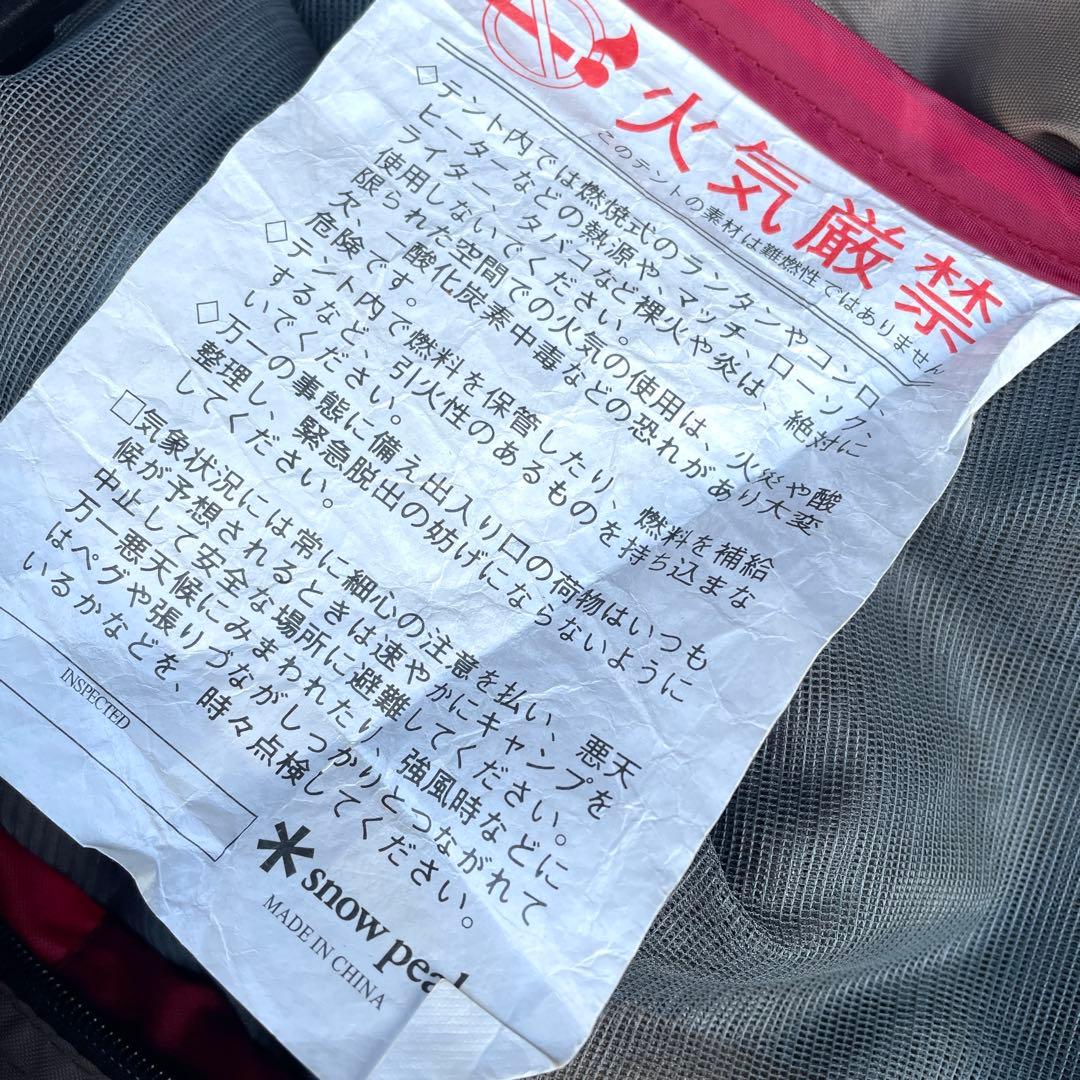 火気厳禁
このテントの素材は難燃性ではありません
◇テント内では燃焼式のランタンやコンロ、
ヒーターなどの熱源や、マッチ、ローソク、
ライター、タバコなど裸火や炎は、絶対に
使用しないでください。
限られた空間での火気の使用は、火災や酸
欠、一酸化炭素中毒などの恐れがあり大変
危険です。
◇テント内で燃料を保管したり、燃料を補給
するなど、引火性のあるものを持ち込まな
いでください。
◇万一の事態に備え出入り口の荷物はいつも
整理し、緊急脱出の妨げにならないように
してください。
□気象状況には常に細心の注意を払い、悪天
候が予想されるときは速やかにキャンプを
中止して安全な場所に避難してください。
万一悪天候にみまわれたり、強風時などに
はペグや張りづながしっかりとつながれて
いるかなどを、時々点検してください。
INSPECTED
snow peak
MADE IN CHINA